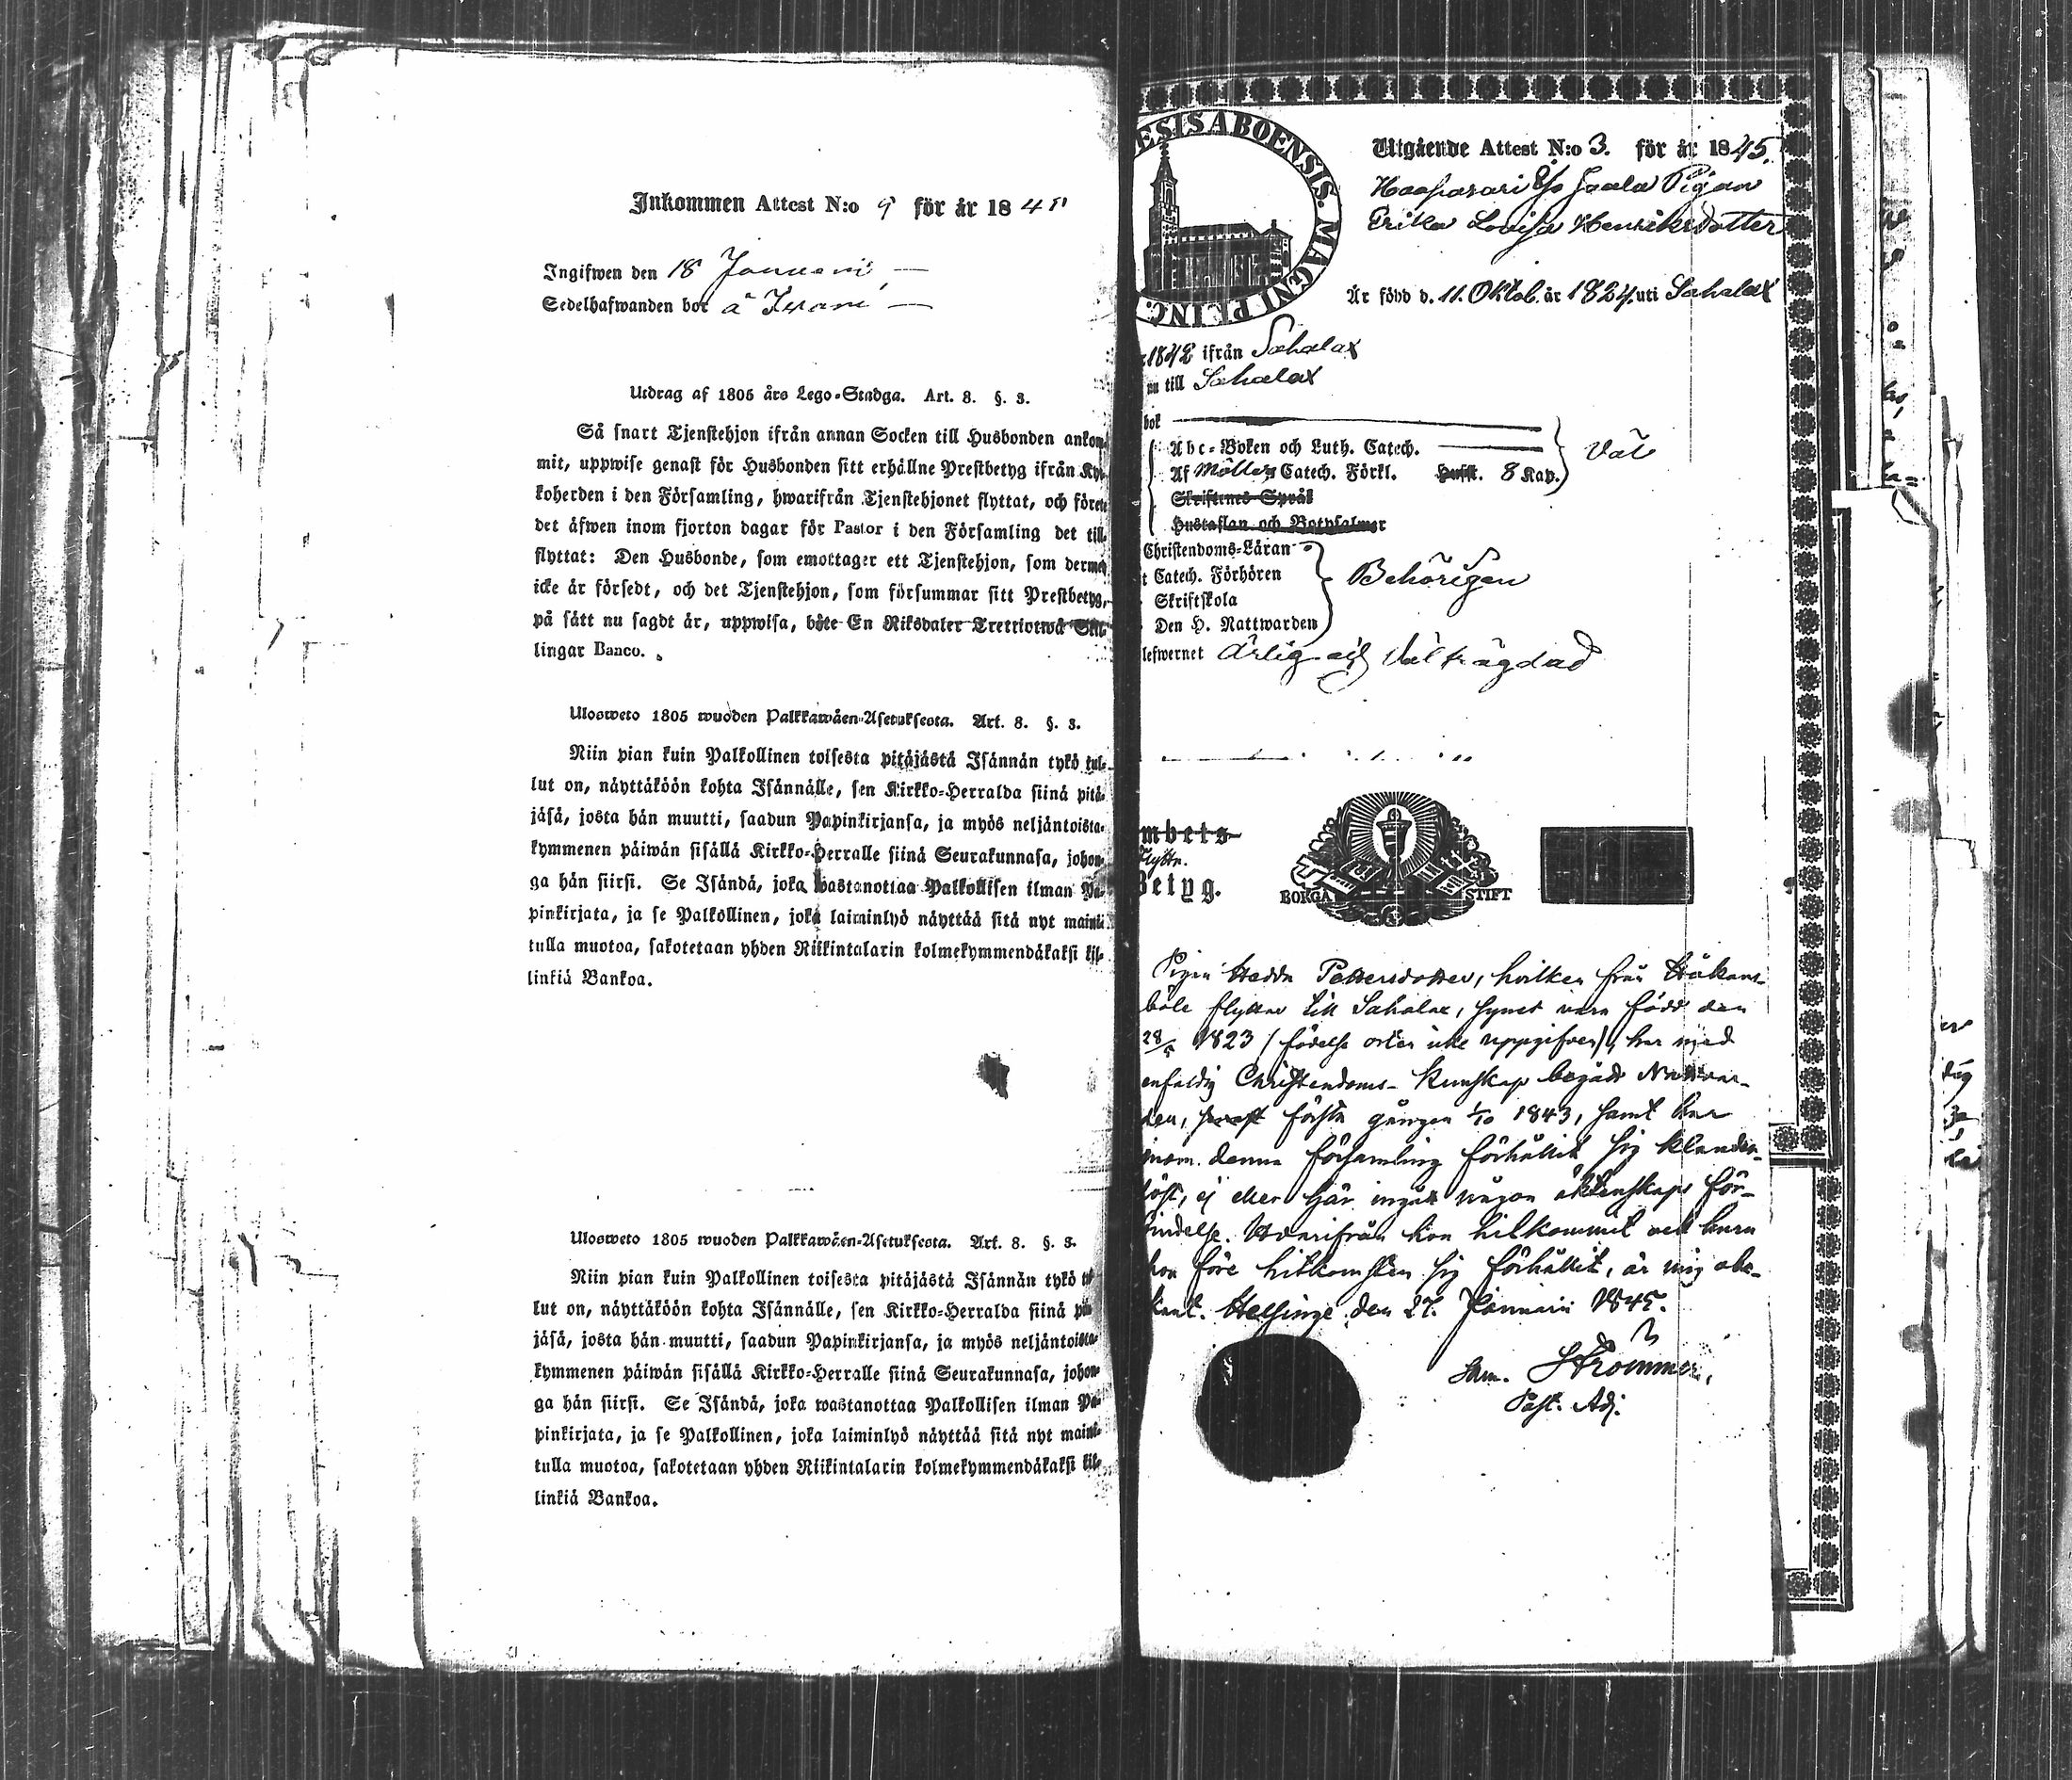 Inkommen Attest N:o 9 för år 184
Ingifwen den 18 Januarii
Sedelhafwanden bor å
Utdrag af 1805 års Lego-Stadga. Art. 8. §. 3.
Så snart Tjenstehjon ifrån annan Socken till Husbonden ankom-
mit, uppwise genast för Husbonden sitt erhållne Prestbetyg ifrån Kyr-
koherden i den Församling, hwarifrån Tjenstehjonet flyttat, och förete
det äfwen inom fjorton dagar för Pastor i den Församling det till-
flyttat: Den Husbonde, som emottager ett Tjenstehjon, som dermed
icke är försedt, och det Tjenstehjon, som försummar sitt Prestbetyg,
på sätt nu sagdt är, uppwisa, böte En Riksdaler Trettiotwå Skil-
lingar Banco.
Ulosweto 1805 wuoden Palkkawäen-Asetuksesta. Art. 8. §. 3.
Niin pian kuin Palkollinen toisesta pitäjästä Isännän tykö tul-
lut on, näyttäköön kohta Isännälle, sen Kirkko-Herralda siinä pitä-
jäsä, josta hän muutti, saadun Papinkirjansa, ja myös neljäntoista-
kymmenen päiwän sisällä Kirkko-Herralle siinä Seurakunnasa, johon-
ga hän siirsi. Se Isändä, joka wastanottaa Palkollisen ilman Pa-
pinkirjata, ja se Palkollinen, joka laiminlyö näyttää sitä nyt maini-
tulla muotoa, sakotetaan yhden Riikintalarin kolmekymmendäkaksi kil-
linkiä Bankoa.
Ulosweto 1805 wuoden Palkkawäen-Asetuksesta. Art. 8. §. 3.
Niin pian kuin Palkollinen toisesta pitäjästä Isännän tykö tul-
lut on, näyttäköön kohta Isännälle, sen Kirkko-Herralda siinä pitä-
jäsä, josta hän muutti, saadun Papinkirjansa, ja myös neljäntoista-
kymmenen päiwän sisällä Kirkko-Herralle siinä Seurakunnasa, johon-
ga hän siirsi. Se Isändä, joka wastanottaa Palkollisen ilman Pa-
pinkirjata, ja se Palkollinen, joka laiminlyö näyttää sitä nyt maini-
tulla muotoa, sakotetaan yhden Riikintalarin kolmekymmendäkaksi kil-
linkiä Bankoa.
ESIS ABOENSIS. MAGNI PRINC.
Utgående Attest N:o 3. för år 1845.
Haapasari Jaala Pigan
Erika Lovisa Henriksdotter
Är född d. 11. Oktob. år 1824. uti Sahalax
1842 ifrån Sahalax
nu till Sahalax
bok
Abc-Boken och Luth. Catech.
Af Möllers Catech. Förkl. Hufst. 8 Kap. Väl
Skriftenes Språk
Hustaflan och Botpsalmer
Christendoms-Läran
t Catech. Förhören Behörigen
Skriftskola
Den H. Nattwarden
lefwernet Ärlig och Välfrägdad
mbets-
Flyttn.
Betyg.
BORGÅ STIFT
Pigan Hedda Pettersdotter, hvilken från Håkans-
böle flyttar till Sahalax, synes vara född den
28/5 1823 (födelse orten icke uppgifven), har med
enfaldig Christendoms-Kunskap begådt Nattvar-
den, första gången 1/10 1843, samt har
inom denna församling förhållit sig klander-
löst, ej eller här ingått någon äktenskaps för-
bindelse. Hvarifrån hon hitkommit och huru
hon före hitkomsten sig förhållit, är mig obe-
kant. Helsinge den 27. Januarii 1845.
Sam. Strömmer,
Past. Adj.